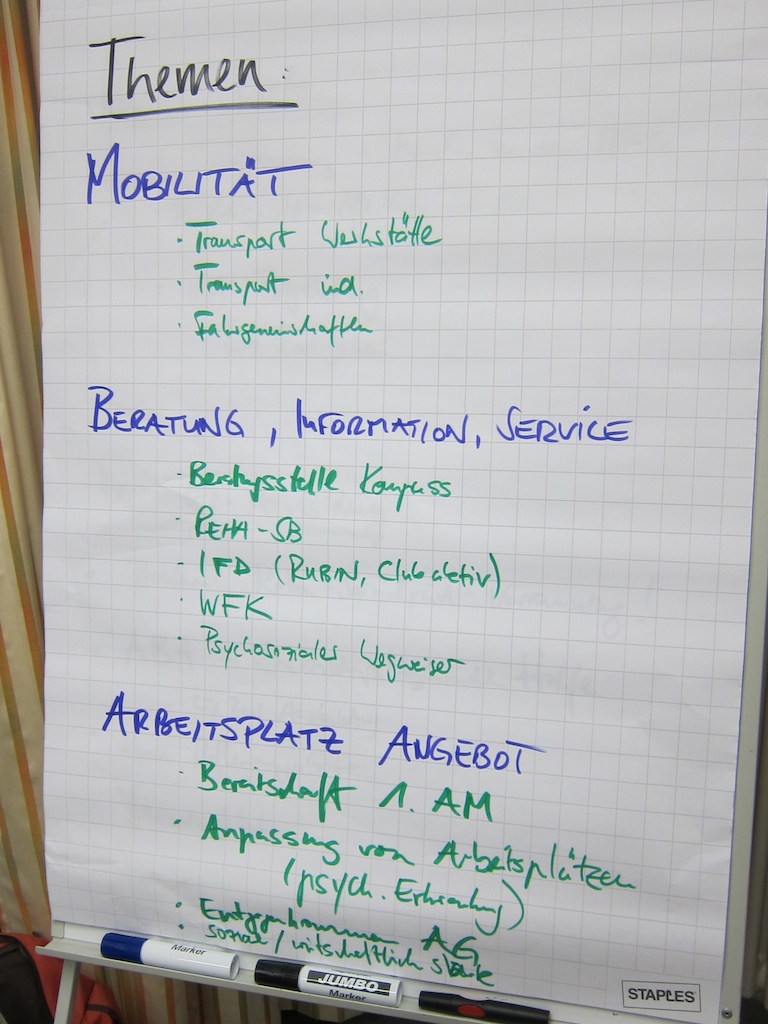 Themen:
MOBILITÄT
· Transport Werkstätte
· Transport ind.
· Fahrgemeinschaften
BERATUNG, INFORMATION, SERVICE
· Beratungsstelle Kompass
· REHA-SB
· IFD (RUBIN, Club aktiv)
· WFK
· Psychosoziales Wegweiser
ARBEITSPLATZ ANGEBOT
· Bereitschaft 1. AM
· Anpassung von Arbeitsplätzen
(psych. Erkrankung)
· Entgegenkommen AG
· sozial / wirtschaftlich
Marker
JUMBO
Marker
STAPLES